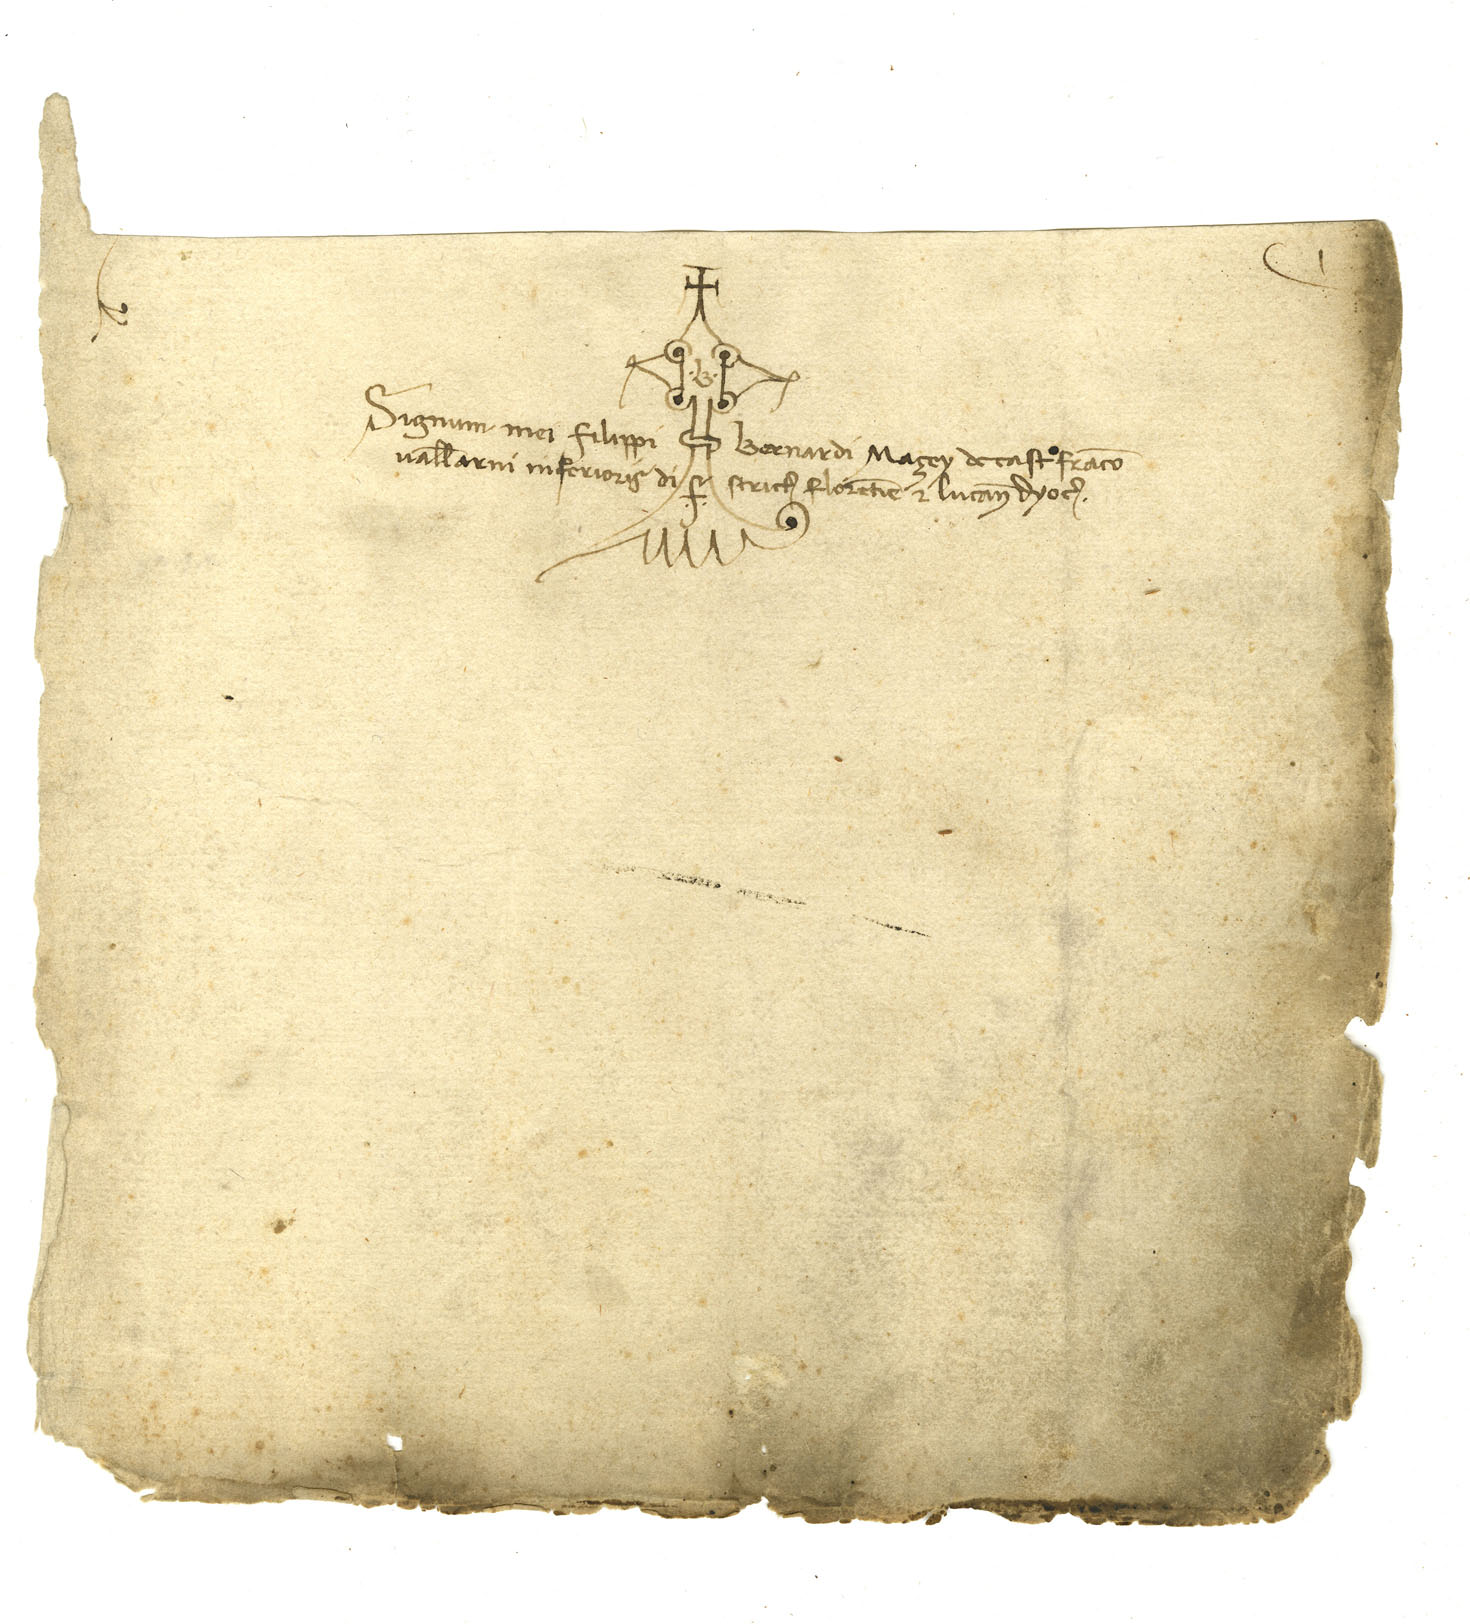 1
·b·
Signum mei filippi bernardi Maçey de castº frāco
vallarni inferioris di strictꝭ florētie ⁊ lucan̄ dyocꝭ.
·f·